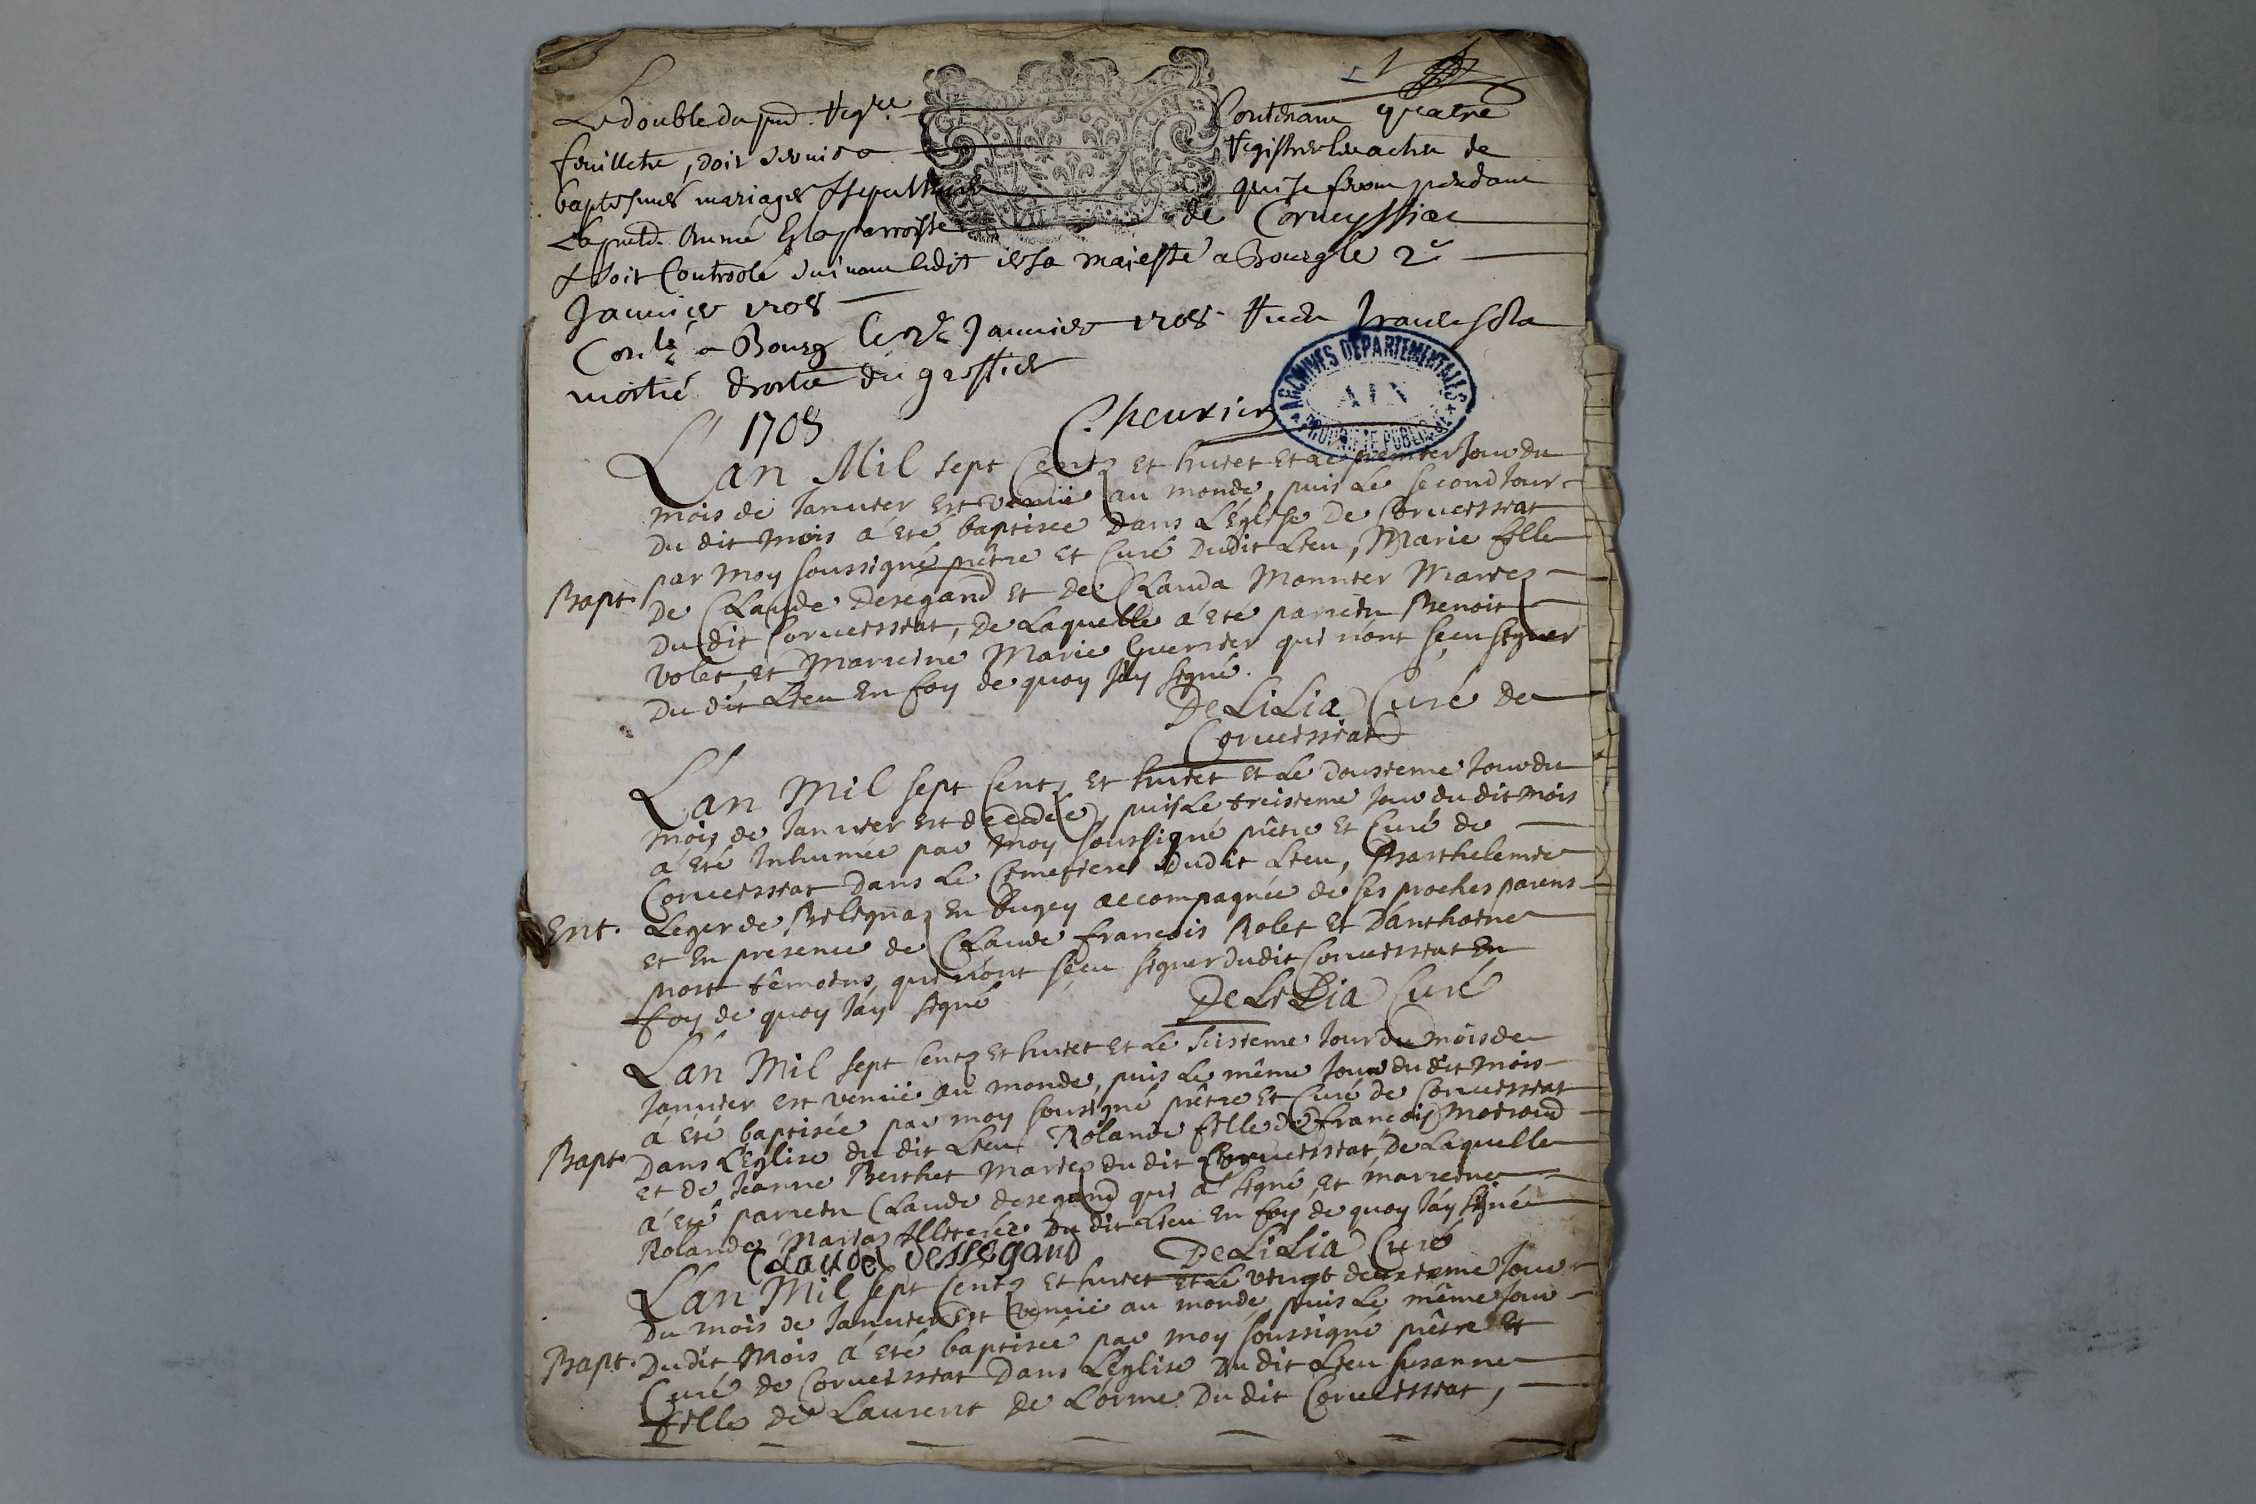 1
Le double du pnt Regre Contenant quatre
feuillets, doit servir a registrer les actes de
baptesmes mariages & sepultures qui se feront pendant
la pnte Année En la parroisse de Corveyssiac
& soit Controolé suivant l'edit de sa majesté a Bourg le 2e
Janvier 1708
Conlé a Bourg le 2e Janvier 1708
moitié droits du greffier
Chevrier
ARCHIVES DEPARTEMENTALES
AIN
PROPRIETE PUBLIQUE
1708
L'an Mil sept Centz et huict et le premier Jour du
mois de Janvier est venüe au monde, puis le second Jour
du dit mois a été baptisée dans L'Eglise De Corveissiat
par moy soussigné prêtre et Curé dudit Lieu, Marie fille
Bapt. De Claude Desegand et de Clauda Monnier Mariez
Du dit Corveissiat, De Laquelle a été parrein Benoit
Volet, et Marreine Marie Guerrier qui n'ont sçeu signer
Du dit Lieu En foy de quoy J'ay signé.
De LiLia Curé de
Corveissiat
L'an Mil sept Centz et huict et Le Dousieme Jour du
mois de Janvier est decedée, puis Le treisieme Jour du dit mois
a été Inhumée par moy soussigné prêtre et Curé de
Corveissiat Dans Le Cimetiere Dudit Lieu, Barthelemie
Ent. Leger de Belignaz En bugey accompagnée de ses proches parens
et En presence de Claude françois Rolet et D'anthoine
Morst têmoins, qui n'ont sçeu signer dudit Corveissiat En
foy de quoy J'ay signé
De LiLia Curé
L'an Mil sept Centz et huict et Le Seisieme Jour du mois de
Janvier est venüe au monde, puis Le même Jour du dit mois
a été baptisée par moy sousigné prêtre et Curé de Corveissiat
Bapt. Dans L'Eglise du dit Lieu Rolande fille de françois Moiroud
et de Jeanne Berthet Mariez du dit Corveissiat, De Laquelle
a été parrein Claude desegand qui a signé, et marreine
Rolande Mariaz Illiterée Du dit Lieu En foy de quoy J'ay signé
Claude dessegand De LiLia Curé
L'an Mil sept Centz et huict et Le vingt deuxieme Jour
Du mois de Janvier est venüe au monde, puis Le même Jour
Bapt. Du dit Mois a été baptisée par moy soussigné prêtre et
Curé de Corveissiat Dans L'Eglise du dit Lieu Susanne
fille de Laurent de L'orme Du dit Corveissiat,